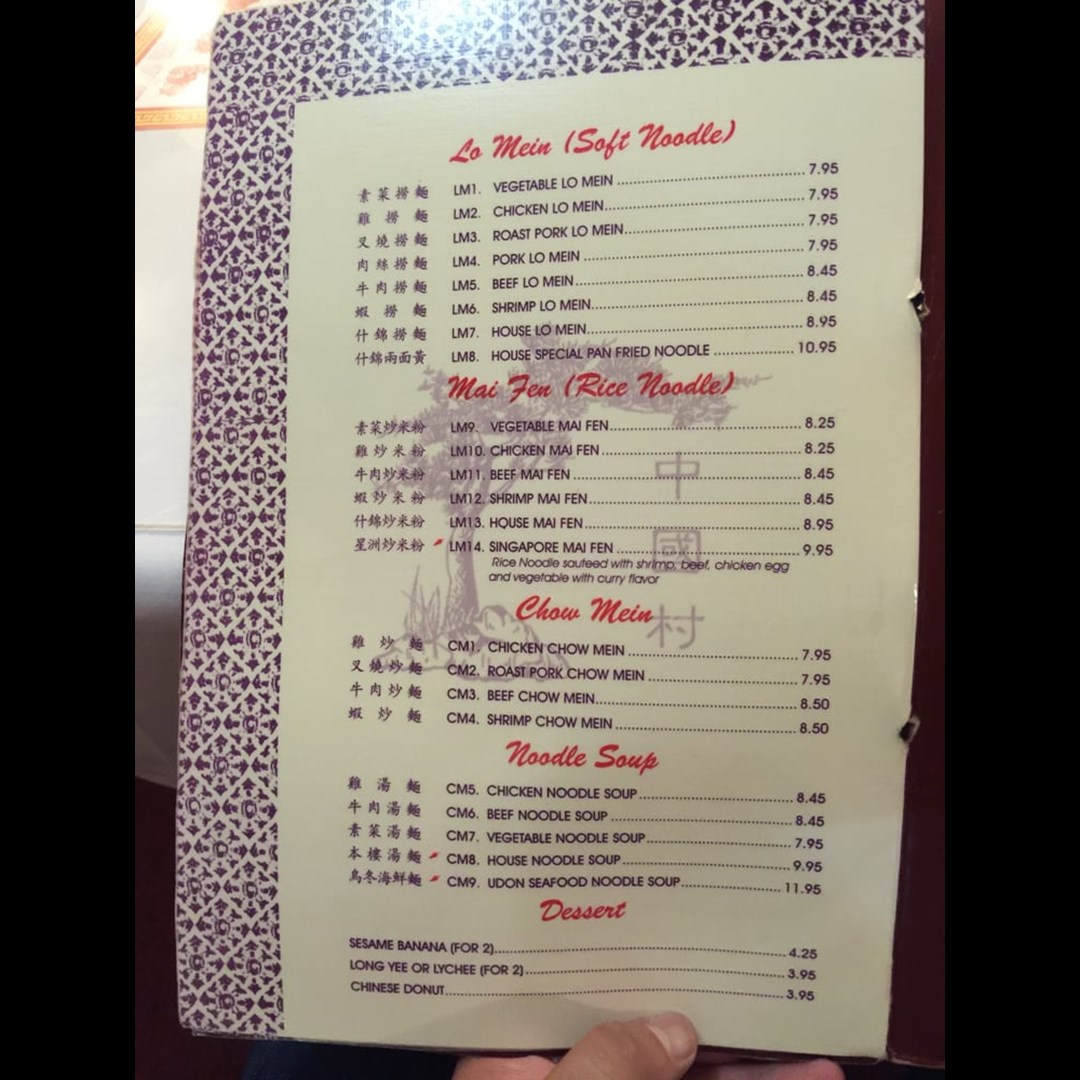 Lo Mein (Soft Noodle)
素菜撈麵 LM1. VEGETABLE LO MEIN 7.95
雞撈麵 LM2. CHICKEN LO MEIN 7.95
叉燒撈麵 LM3. ROAST PORK LO MEIN 7.95
肉絲撈麵 LM4. PORK LO MEIN 7.95
牛肉撈麵 LM5. BEEF LO MEIN 8.45
蝦撈麵 LM6. SHRIMP LO MEIN 8.45
什錦撈麵 LM7. HOUSE LO MEIN 8.95
什錦兩面黃 LM8. HOUSE SPECIAL PAN FRIED NOODLE 10.95
Mai Fen (Rice Noodle)
素菜炒米粉 LM9. VEGETABLE MAI FEN 8.25
雞炒米粉 LM10. CHICKEN MAI FEN 8.25
牛肉炒米粉 LM11. BEEF MAI FEN 8.45
蝦炒米粉 LM12. SHRIMP MAI FEN 8.45
什錦炒米粉 LM13. HOUSE MAI FEN 8.95
星洲炒米粉 LM14. SINGAPORE MAI FEN 9.95
Rice Noodle sauteed with shrimp, beef, chicken egg
and vegetable with curry flavor
中國村
Chow Mein
雞炒麵 CM1. CHICKEN CHOW MEIN 7.95
叉燒炒麵 CM2. ROAST PORK CHOW MEIN 7.95
牛肉炒麵 CM3. BEEF CHOW MEIN 8.50
蝦炒麵 CM4. SHRIMP CHOW MEIN 8.50
Noodle Soup
雞湯麵 CM5. CHICKEN NOODLE SOUP 8.45
牛肉湯麵 CM6. BEEF NOODLE SOUP 8.45
素菜湯麵 CM7. VEGETABLE NOODLE SOUP 7.95
本樓湯麵 CM8. HOUSE NOODLE SOUP 9.95
烏冬海鮮麵 CM9. UDON SEAFOOD NOODLE SOUP 11.95
Dessert
SESAME BANANA (FOR 2) 4.25
LONG YEE OR LYCHEE (FOR 2) 3.95
CHINESE DONUT 3.95